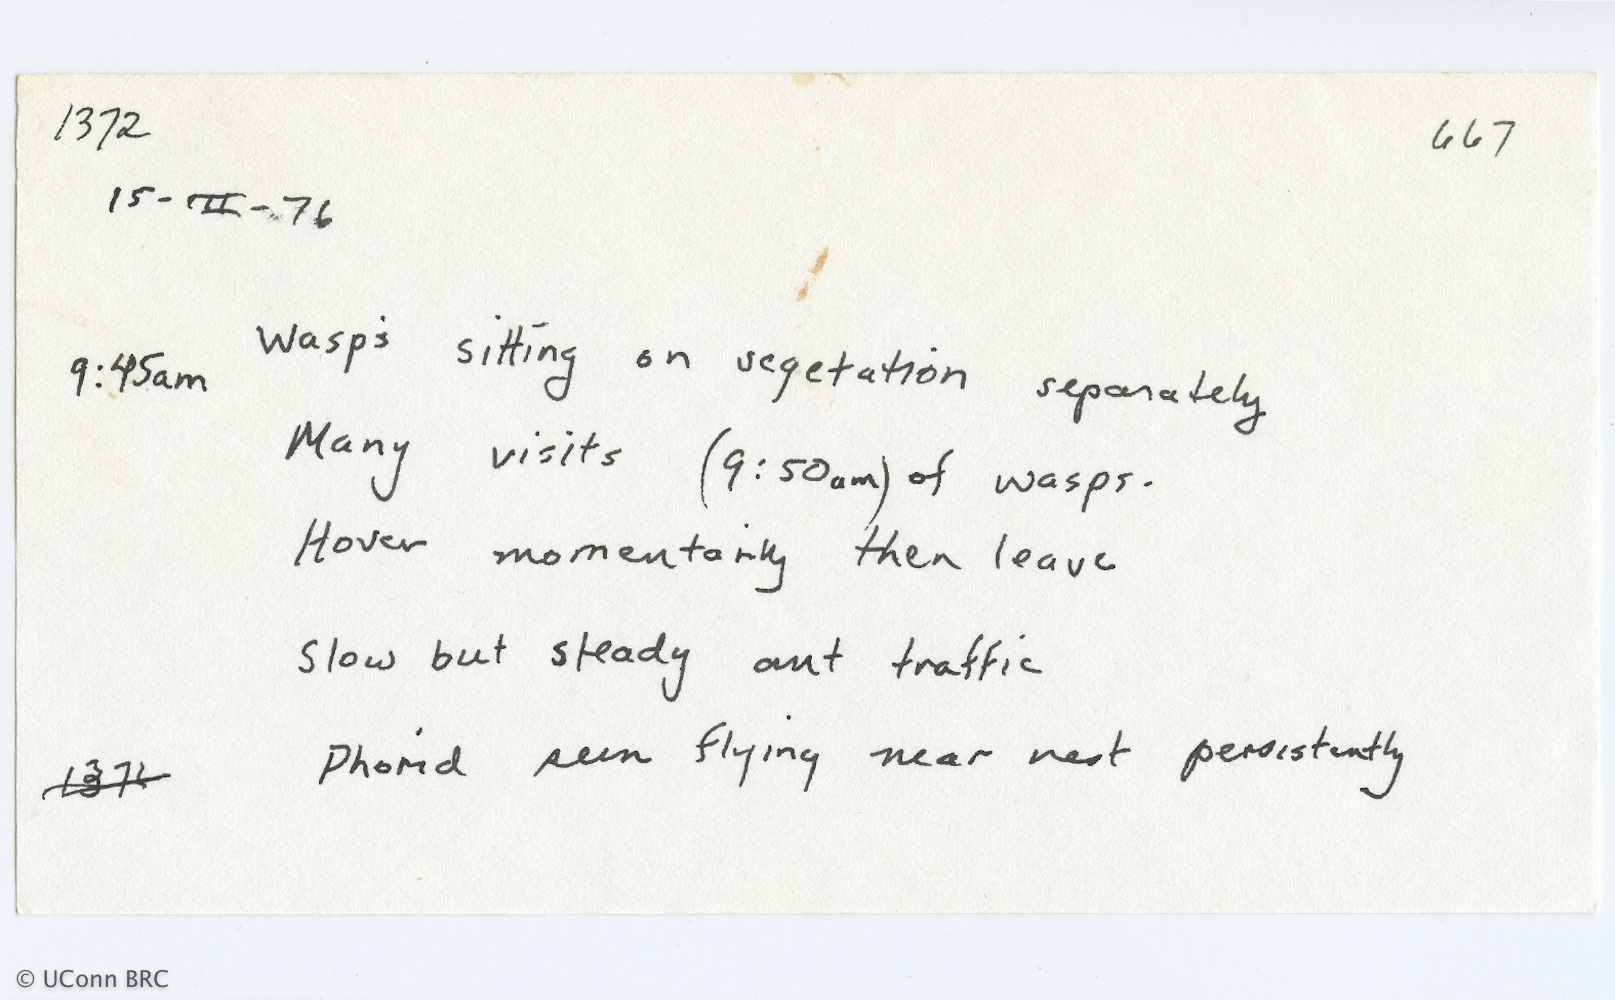 1372
667
15-II-76
9:45am Wasps sitting on vegetation separately
Many visits (9:50am) of wasps.
Hover momentarily then leave
Slow but steady ant traffic
Phorid seen flying near nest persistently
© UConn BRC